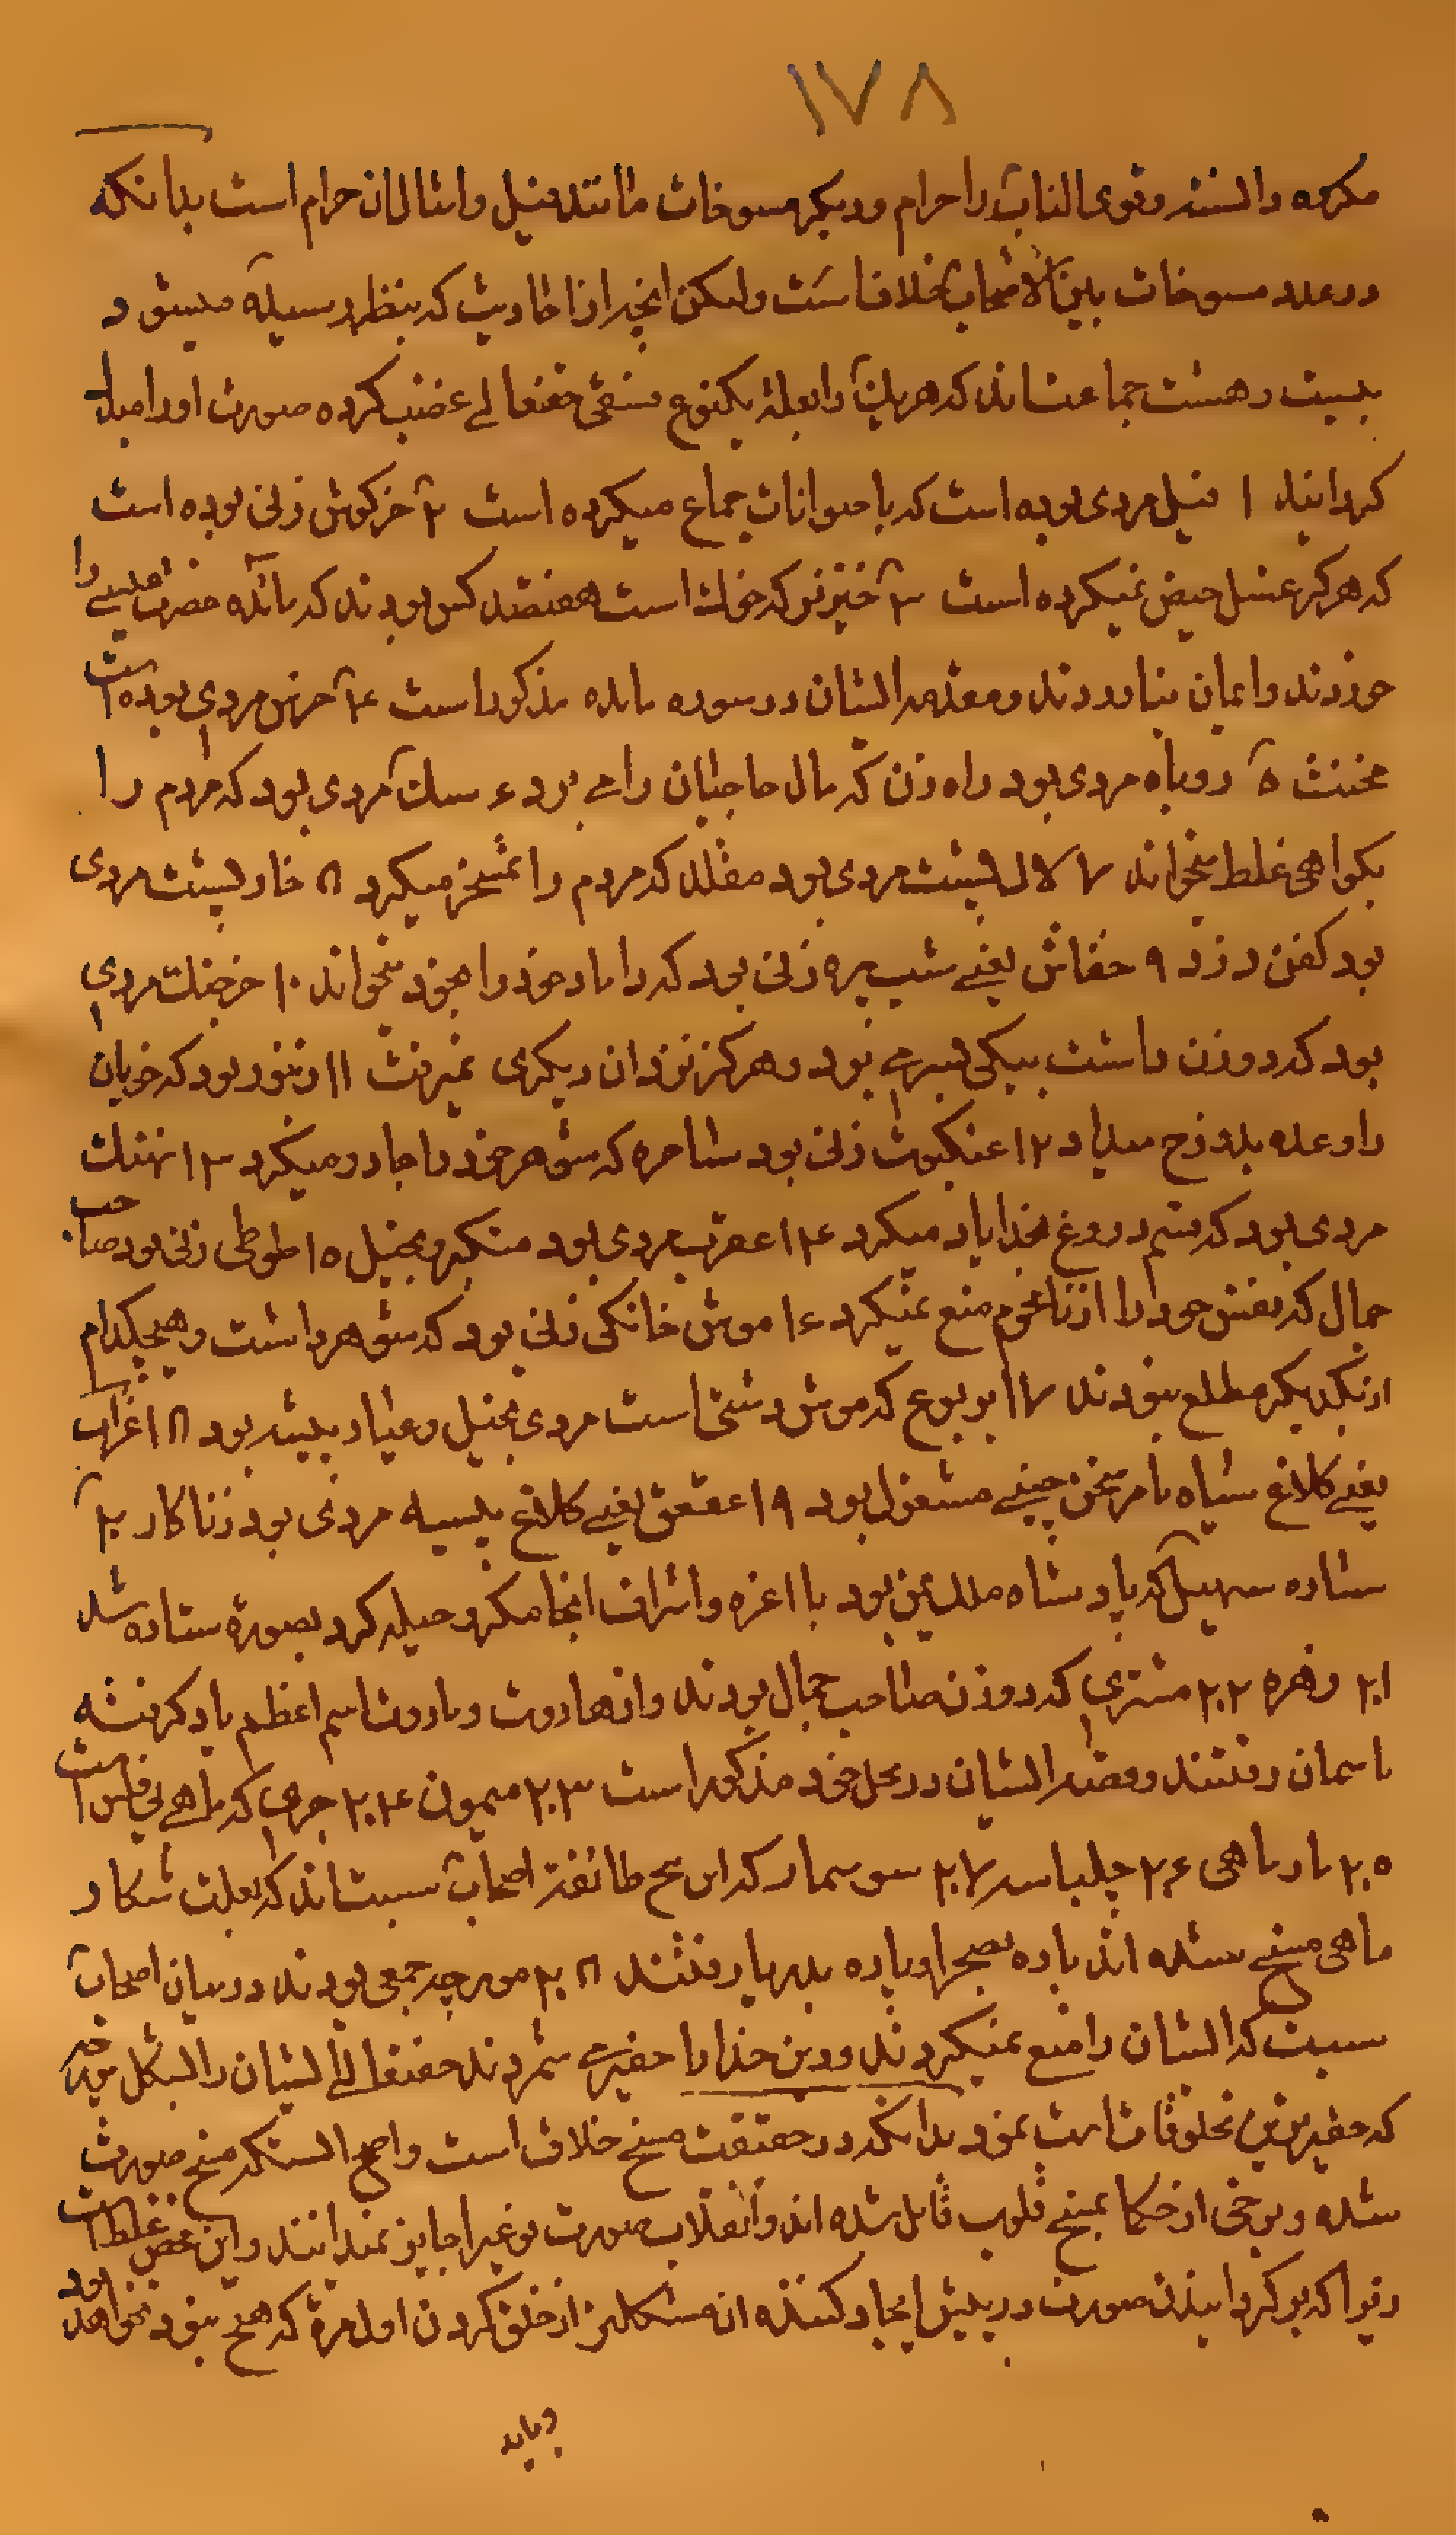 ۱۷۸
مکروه دانسته و قوی الناب را حرام و دیگر مسوخات مانند فیل و امثال ان حرام است بدانکه
در عدد مسوخات بین الاصحاب خلاف است ولیکن انچه از احادیث که بنظر رسیده میشود
بیست و هشت جماعت اند که هریک را بعلة یکنوع فسقی حقتعالی غضب کرده صورت او را مبدل
کردانید ۱ فیل مردی بوده است که با حیوانات جماع میکرده است ۲ خرکوش زنی بوده است
که هرکز غسل حیض نمیکرده است ۳ خنزیر که خوک است هفتصد کس بودند که مائده حضرت عیسی را
خوردند و ایمان نیاوردند و مقدمه ایشان در سوره مائده مذکور است ۴ خرس مردی بوده است
مخنث ۵ روباه مردی بود راه زن که مال حاجیان را می برد ۶ سک مردی بود که مردم را
بکواهی غلط میخواند ۷ لاک پشت مردی بود مقلد که مردم را تمسخر میکرد ۸ خار پشت مردی
بود کفن دزد ۹ خفاش یعنی شب پره زنی بود که داماد خود را بخود میخواند ۱۰ خرچنک مردی
بود که دو زن داشت بیکی میرسید بود و هرکز نزد ان دیکری نمیرفت ۱۱ زنبور بود که خویان
را وعده بد دروغ میداد ۱۲ عنکبوت زنی بود ساحره که شوهر خود را جادو میکرد ۱۳ نهنک
مردی بود که قسم دروغ بخدا یاد میکرد ۱۴ عقرب مردی بود متکبر و بخیل ۱۵ طوطی زنی بود صاحب
جمال که نفس خود را از نامحرم منع نمیکرد ۱۶ موش خانکی زنی بود که شوهر داشت و هیچکدام
از یکدیکر مطلع نبودند ۱۷ یربوع که موش دشتی است مردی بخیل و عیار پیشه بود ۱۸ غراب
یعنی کلاغ سیاه بامر سخن چینی مشغول بود ۱۹ عقعق یعنی کلاغ پیسه مردی بود زناکار ۲۰
ستاره سهیل که پادشاه ملک یمن بود با اعزه و اشراف انجا مکر و حیله کرد بصورة ستاره شد
۲۱ زهره ۲۲ مشتری که دو زن صاحب جمال بودند و از هاروت و ماروت اسم اعظم یاد کرفته
باسمان رفتند و قصه ایشان در محل خود مذکور است ۲۳ میمون ۲۴ جری که ماهی بی فلس است
۲۵ مار ماهی ۲۶ چلپاسه ۲۷ سوسمار که این پنج طائفه اصحاب سبت اند که بعلت شکار
ماهی مسخ شده اند پاره بصحرا و پاره بدریا رفتند ۲۸ مورچه جمعی بودند در میان اصحاب
سبت که ایشان را منع نمیکردند و دین خدا را حقیر می شمردند حقتعالی ایشان را بشکل مورچه
که حقیرترین مخلوقات است نمود بدانکه در حقیقت مسخ خلاف است و اصح انستکه مسخ صورت
شده و برخی از حکما بمسخ قلوب قائل شده اند و انقلاب صورت نوعیه را جایز نمیدانند و این محض غلط است
زیرا که برکردانیدن صورت در پیش ایجاد کننده ان مشکلتر از خلق کردن اول مرة که هیچ نبود نخواهد بود
و باید